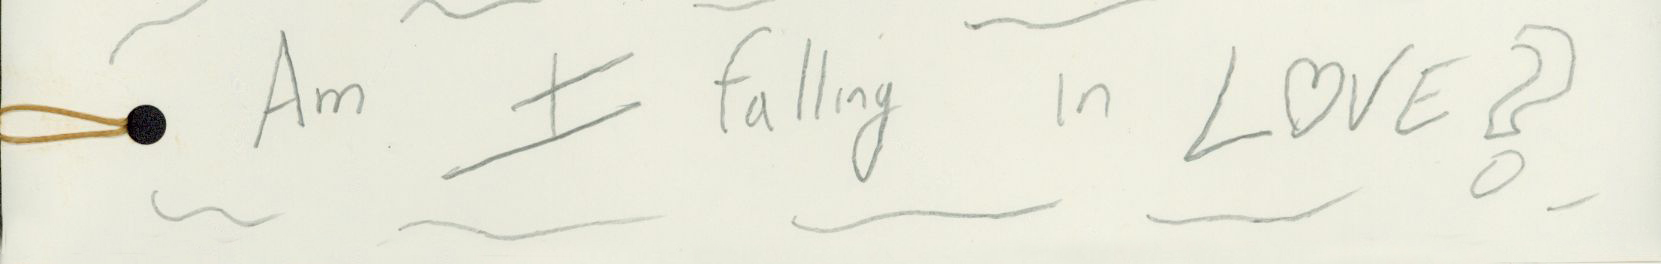 Am I falling in LOVE?